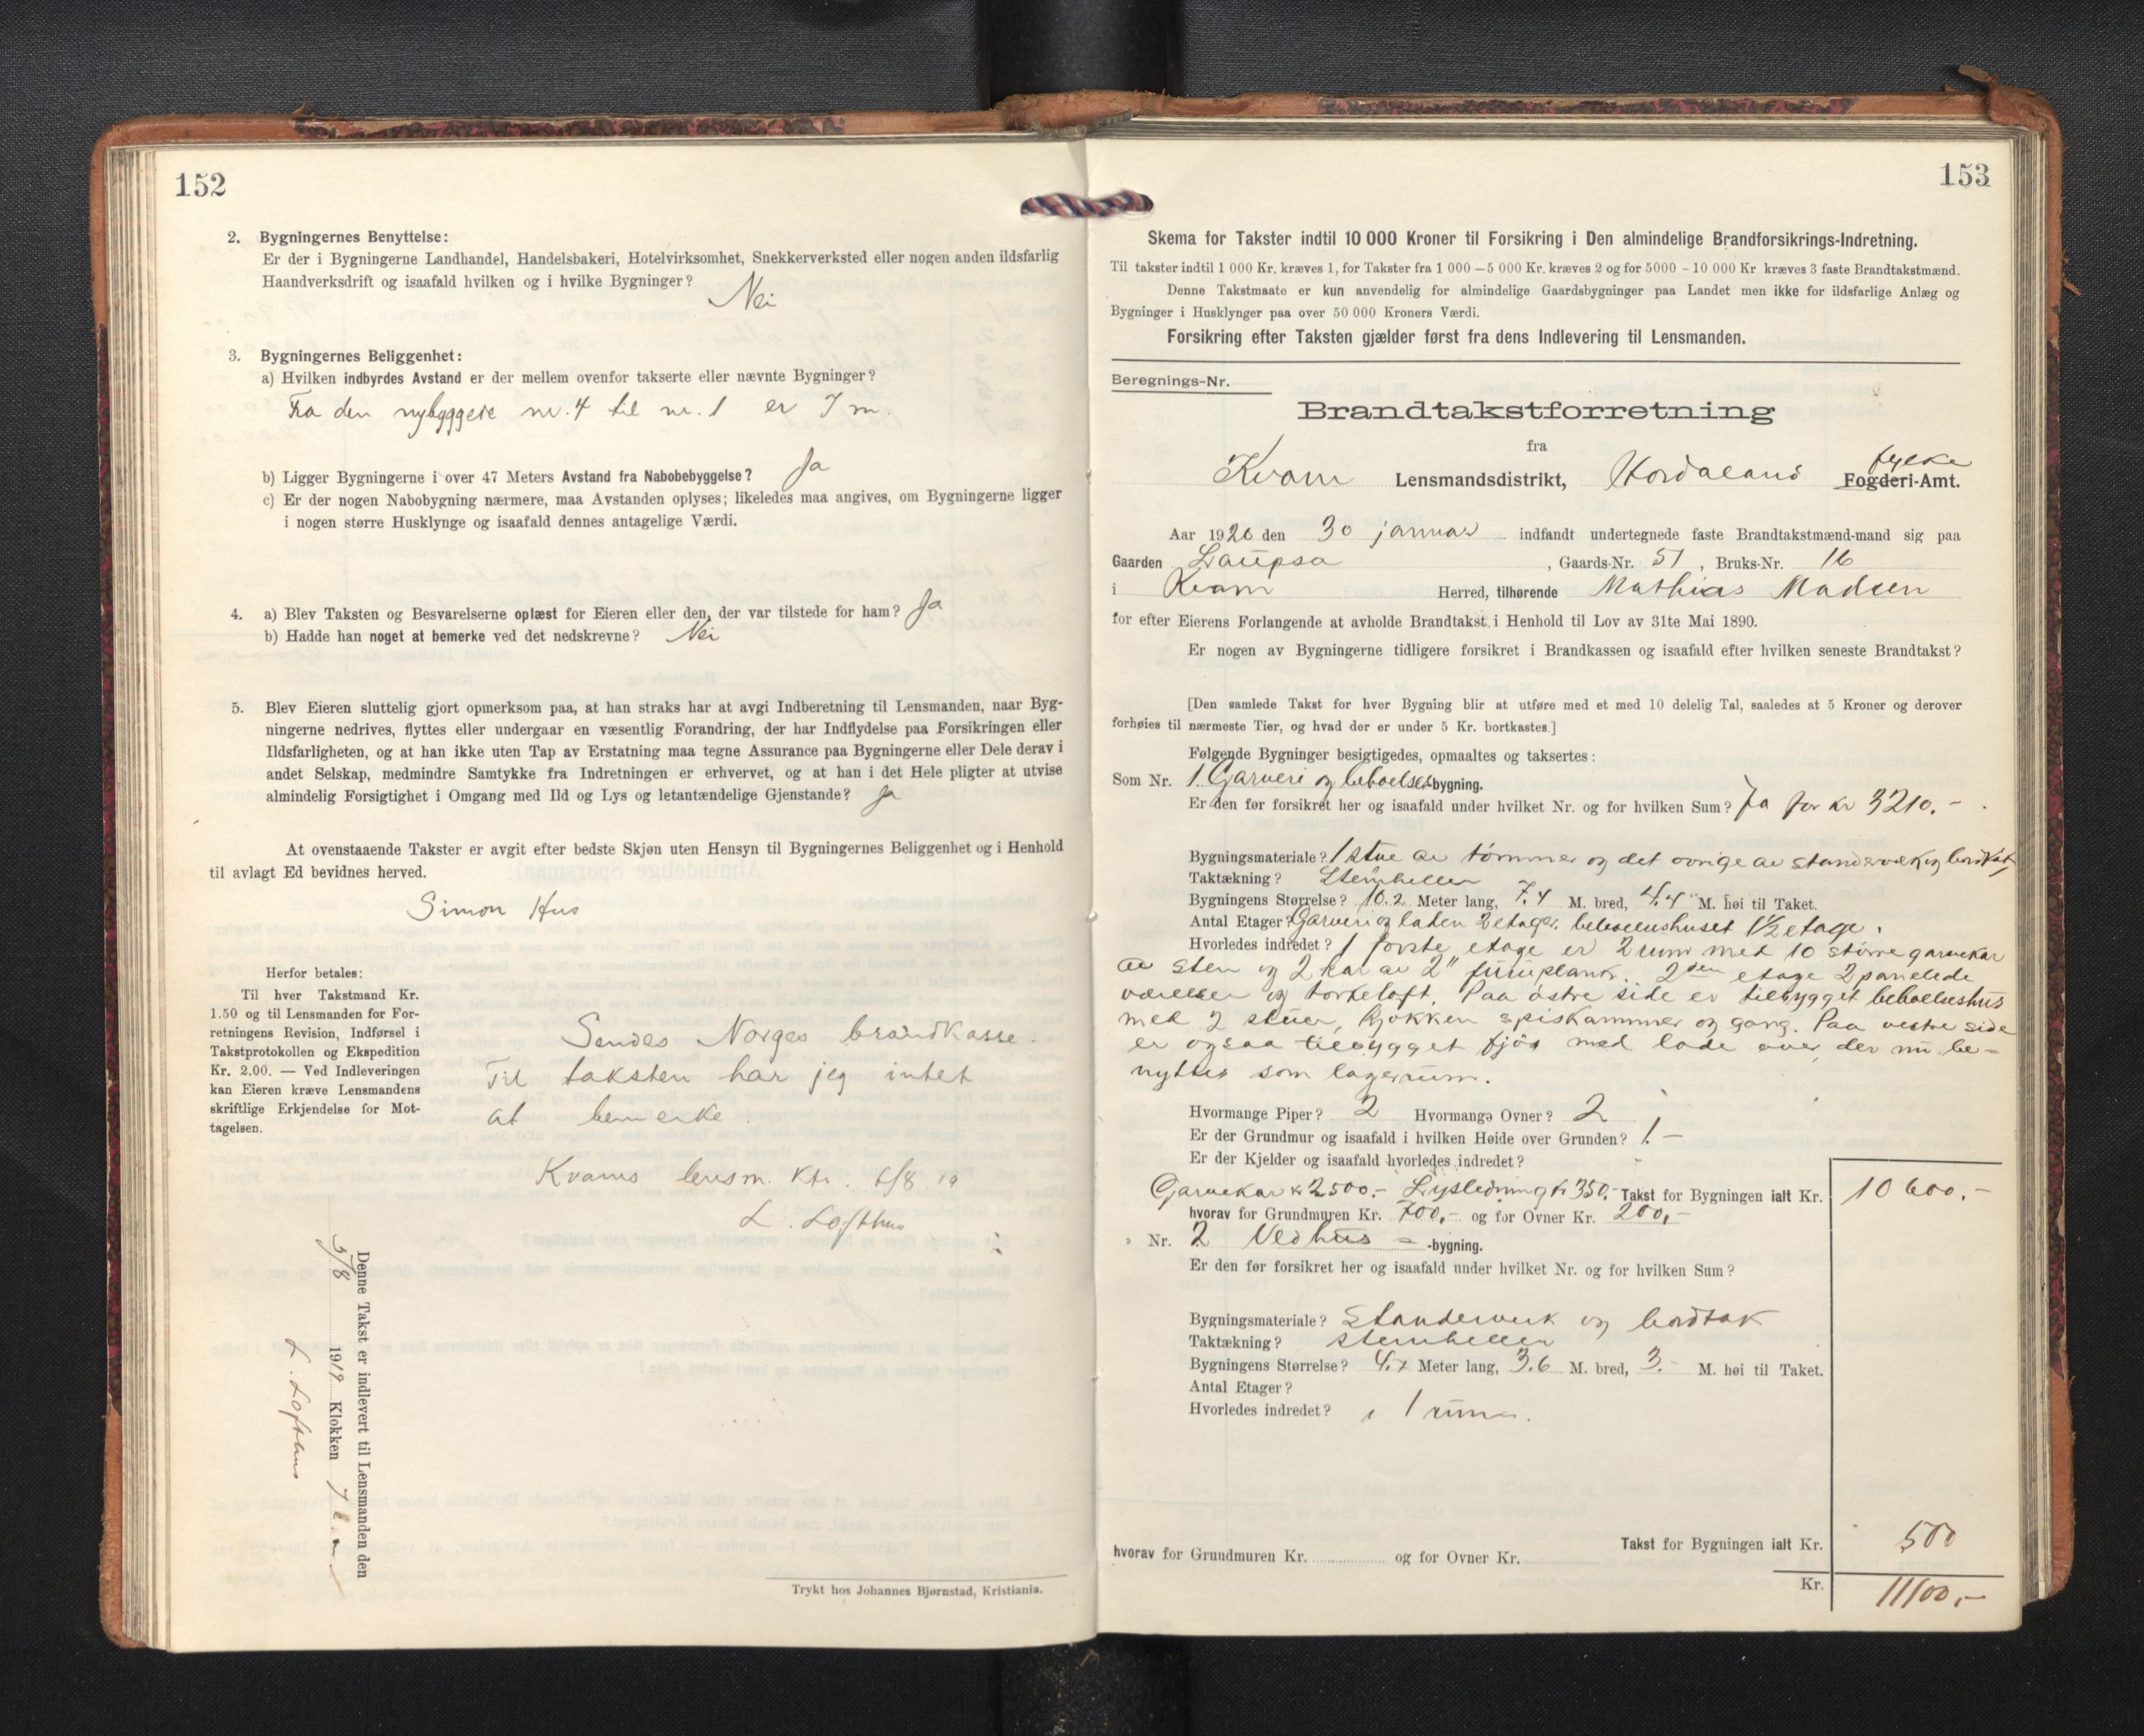 152
2. Bygningernes Benyttelse:
Er der i Bygningerne Landhandel, Handelsbakeri, Hotelvirksomhet, Snekkerverksted eller nogen anden ildsfarlig
Haandverksdrift og isaafald hvilken og i hvilke Bygninger? Nei
3. Bygningernes Beliggenhet:
a) Hvilken indbyrdes Avstand er der mellem ovenfor takserte eller nævnte Bygninger?
Fra den nybyggede nr. 4 til nr. 1 er 7 m.
b) Ligger Bygningerne i over 47 Meters Avstand fra Nabobebyggelse? Ja
c) Er der nogen Nabobygning nærmere, maa Avstanden oplyses; likeledes maa angives, om Bygningerne ligger
i nogen større Husklynge og isaafald dennes antagelige Værdi.
4. a) Blev Taksten og Besvarelserne oplæst for Eieren eller den, der var tilstede for ham? Ja
b) Hadde han noget at bemerke ved det nedskrevne? Nei
5. Blev Eieren sluttelig gjort opmerksom paa, at han straks har at avgi Indberetning til Lensmanden, naar Byg-
ningerne nedrives, flyttes eller undergaar en væsentlig Forandring, der har Indflydelse paa Forsikringen eller
Ildsfarligheten, og at han ikke uten Tap av Erstatning maa tegne Assurance paa Bygningerne eller Dele derav i
andet Selskap, medmindre Samtykke fra Indretningen er erhvervet, og at han i det Hele pligter at utvise
almindelig Forsigtighet i Omgang med Ild og Lys og letantændelige Gjenstande? Ja
At ovenstaaende Takster er avgit efter bedste Skjøn uten Hensyn til Bygningernes Beliggenhet og i Henhold
til avlagt Ed bevidnes herved.
Simon Hus
Herfor betales:
Til hver Takstmand Kr.
1.50 og til Lensmanden for For-
retningens Revision, Indførsel i
Takstprotokollen og Ekspedition
Kr. 2.00. — Ved Indleveringen
kan Eieren kræve Lensmandens
skriftlige Erkjendelse for Mot-
tagelsen.
Sendes Norges brandkasse.
Til taksten har jeg intet
at bemerke.
Kvams lensm. ktr. 6/8 19
L. Lofthus
Denne Takst er indlevert til Lensmanden den
5/8 1919 Klokken 7
L. Lofthus
Trykt hos Johannes Bjørnstad, Kristiania.
153
Skema for Takster indtil 10 000 Kroner til Forsikring i Den almindelige Brandforsikrings-Indretning.
Til takster indtil 1 000 Kr. kræves 1, for Takster fra 1 000 — 5 000 Kr. kræves 2 og for 5000 - 10 000 Kr kræves 3 faste Brandtakstmænd.
Denne Takstmaate er kun anvendelig for almindelige Gaardsbygninger paa Landet men ikke for ildsfarlige Anlæg og
Bygninger i Husklynger paa over 50 000 Kroners Værdi.
Forsikring efter Taksten gjælder først fra dens Indlevering til Lensmanden.
Beregnings-Nr.
Brandtakstforretning
fra
Kvam Lensmandsdistrikt, Hordaland fylke Fogderi-Amt.
Aar 1920 den 30 januar indfandt undertegnede faste Brandtakstmænd-mand sig paa
Gaarden Laupsa, Gaards-Nr. 51, Bruks-Nr. 16
i Kvam Herred, tilhørende Mathias Madsen
for efter Eierens Forlangende at avholde Brandtakst i Henhold til Lov av 31te Mai 1890.
Er nogen av Bygningerne tidligere forsikret i Brandkassen og isaafald efter hvilken seneste Brandtakst?
[Den samlede Takst for hver Bygning blir at utføre med et med 10 delelig Tal, saaledes at 5 Kroner og derover
forhøies til nærmeste Tier, og hvad der er under 5 Kr. bortkastes.]
Følgende Bygninger besigtigedes, opmaaltes og taksertes:
Som Nr. 1. Garveri og beboelses-bygning.
Er den før forsikret her og isaafald under hvilket Nr. og for hvilken Sum? Ja for kr 3210.-
Bygningsmateriale? 1 stue av tømmer og det øvrige av standerverk og bordtak,
Taktækning? Stenheller
Bygningens Størrelse? 10.2 Meter lang, 7.4 M. bred, 4.4 M. høi til Taket.
Antal Etager? Garveri og laden 2 etager, beboelseshuset 1½ etage.
Hvorledes indredet? I første etage er 2 rum med 10 større garvekar
av sten og 2 kar av 2" furuplank. 2den etage 2 panelede
værelser og tørkeloft. Paa østre side er tilbygget beboelseshus
med 2 stuer, kjøkken spiskammer og gang. Paa vestre side
er ogsaa tilbygget fjøs med lade over, der nu be-
nyttes som lagerrum.
Hvormange Piper? 2 Hvormange Ovner? 2
Er der Grundmur og isaafald i hvilken Høide over Grunden? 1.-
Er der Kjelder og isaafald hvorledes indredet?
Garvekar kr 2500.- Lysledning kr 350.- Takst for Bygningen ialt Kr. 10 600.-
hvorav for Grundmuren Kr. 700,- og for Ovner Kr. 200,-
Nr. 2 Vedhus -bygning.
Er den før forsikret her og isaafald under hvilket Nr. og for hvilken Sum?
Bygningsmateriale? Standerverk og bordtak
Taktækning? stenheller
Bygningens Størrelse? Meter lang, 3.6 M. bred, 3.- M. høi til Taket.
Antal Etager?
Hvorledes indredet? i 1 rum.
Takst for Bygningen ialt Kr. 500
hvorav for Grundmuren Kr. og for Ovner Kr.
Kr. 11100,-